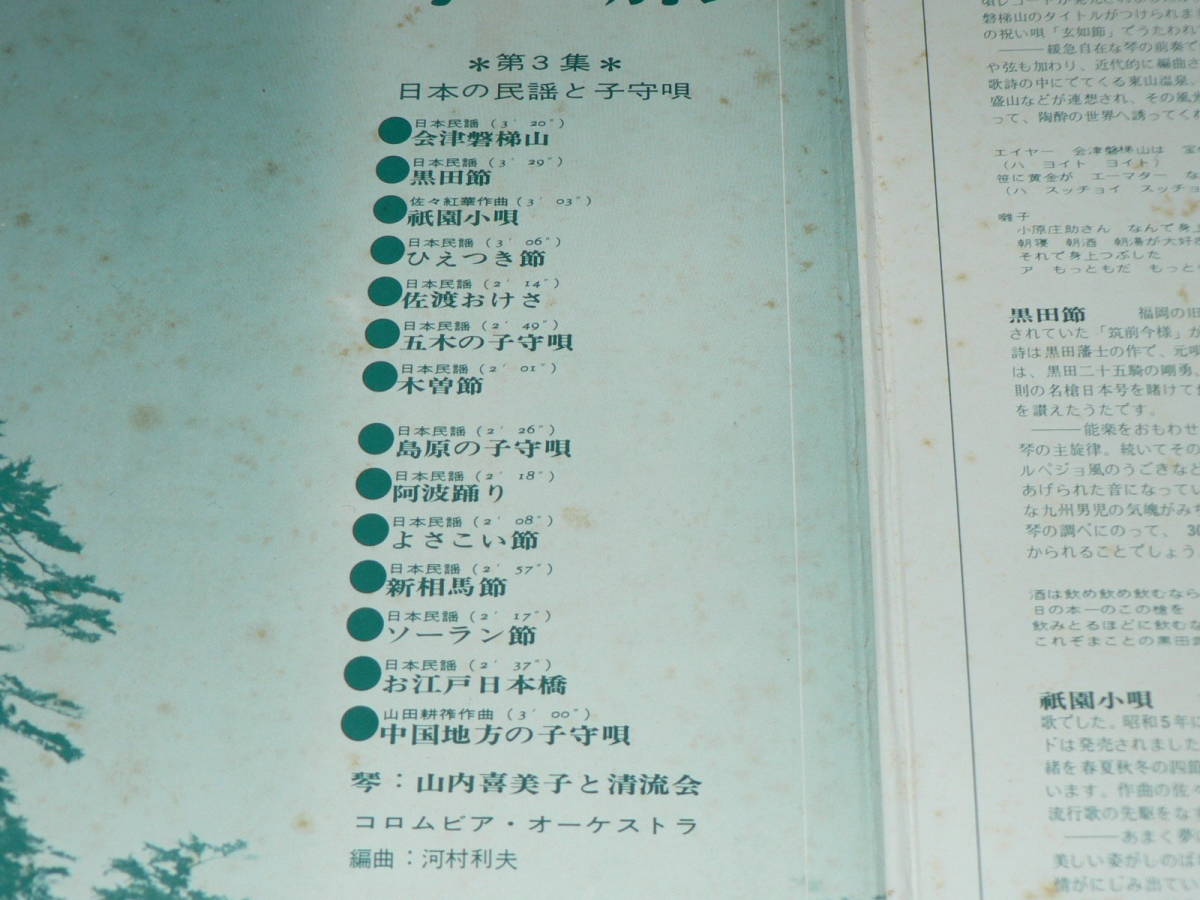 *第3集*
日本の民謡と子守唄
日本民謡 (3′ 20″)
会津磐梯山
日本民謡 (3′ 29″)
黒田節
佐々紅華作曲 (3′ 03″)
祇園小唄
日本民謡 (3′ 06″)
ひえつき節
日本民謡 (2′ 14″)
佐渡おけさ
日本民謡 (2′ 49″)
五木の子守唄
日本民謡 (2′ 01″)
木曽節
日本民謡 (2′ 26″)
島原の子守唄
日本民謡 (2′ 18″)
阿波踊り
日本民謡 (2′ 08″)
よさこい節
日本民謡 (2′ 57″)
新相馬節
日本民謡 (2′ 17″)
ソーラン節
日本民謡 (2′ 37″)
お江戸日本橋
山田耕筰作曲 (3′ 00″)
中国地方の子守唄
琴:山内喜美子と清流会
コロムビア・オーケストラ
編曲:河村利夫
磐梯山のタイトルがつけられま
の祝い唄「玄如節」でうたわれ
――緩急自在な琴の前奏で
や弦も加わり、近代的に編曲さ
歌詩の中にでてくる東山温泉
盛山などが連想され、その風光
って、陶酔の世界へ誘ってくれ
エイヤー 会津磐梯山は 宝
(ハ ヨイト ヨイト)
笹に黄金が エーマター な
(ハ スッチョイ スッチョ
囃子
小原庄助さん なんで身上
朝寝 朝酒 朝湯が大好き
それで身上つぶした
ア もっともだ もっとも
黒田節 福岡の旧
されていた「筑前今様」が
詩は黒田藩士の作で、元唄
は、黒田二十五騎の剛勇、
則の名槍日本号を賭けて
を讃えたうたです。
――能楽をおもわせ
琴の主旋律。続いてその
ルペジョ風のうごきなど
あげられた音になってい
な九州男児の気魄がみち
琴の調べにのって、 30
かられることでしょう
酒は飲め飲め飲むなら
日の本一のこの槍を
飲みとるほどに飲むな
これぞまことの黒田武
祇園小唄
歌でした。昭和5年に
ドは発売されました
緒を春夏秋冬の四節
います。作曲の佐々
流行歌の先駆をなす
――あまく夢
美しい姿がしのば
情がにじみ出てい